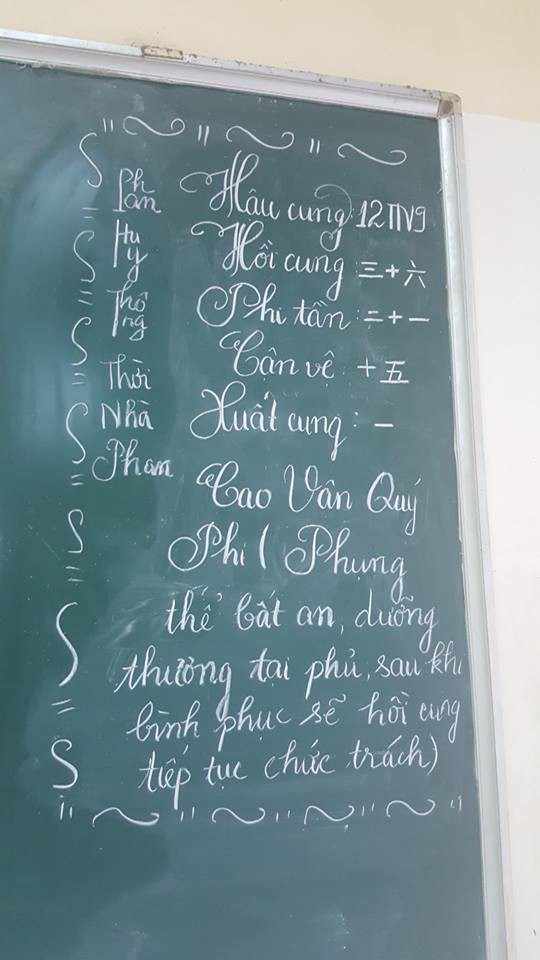 Phan
Huy
Thông
Thời
Nhà
Phan
Hậu cung: 12TN9
Hồi cung 三+六
Phi tần: 二+一
Cận vệ: +五
Xuất cung: 一
Cao Vân Quý
Phi (Phụng
thể bất an, dưỡng
thương tại phủ, sau khi
bình phục sẽ hồi cung
tiếp tục chức trách)